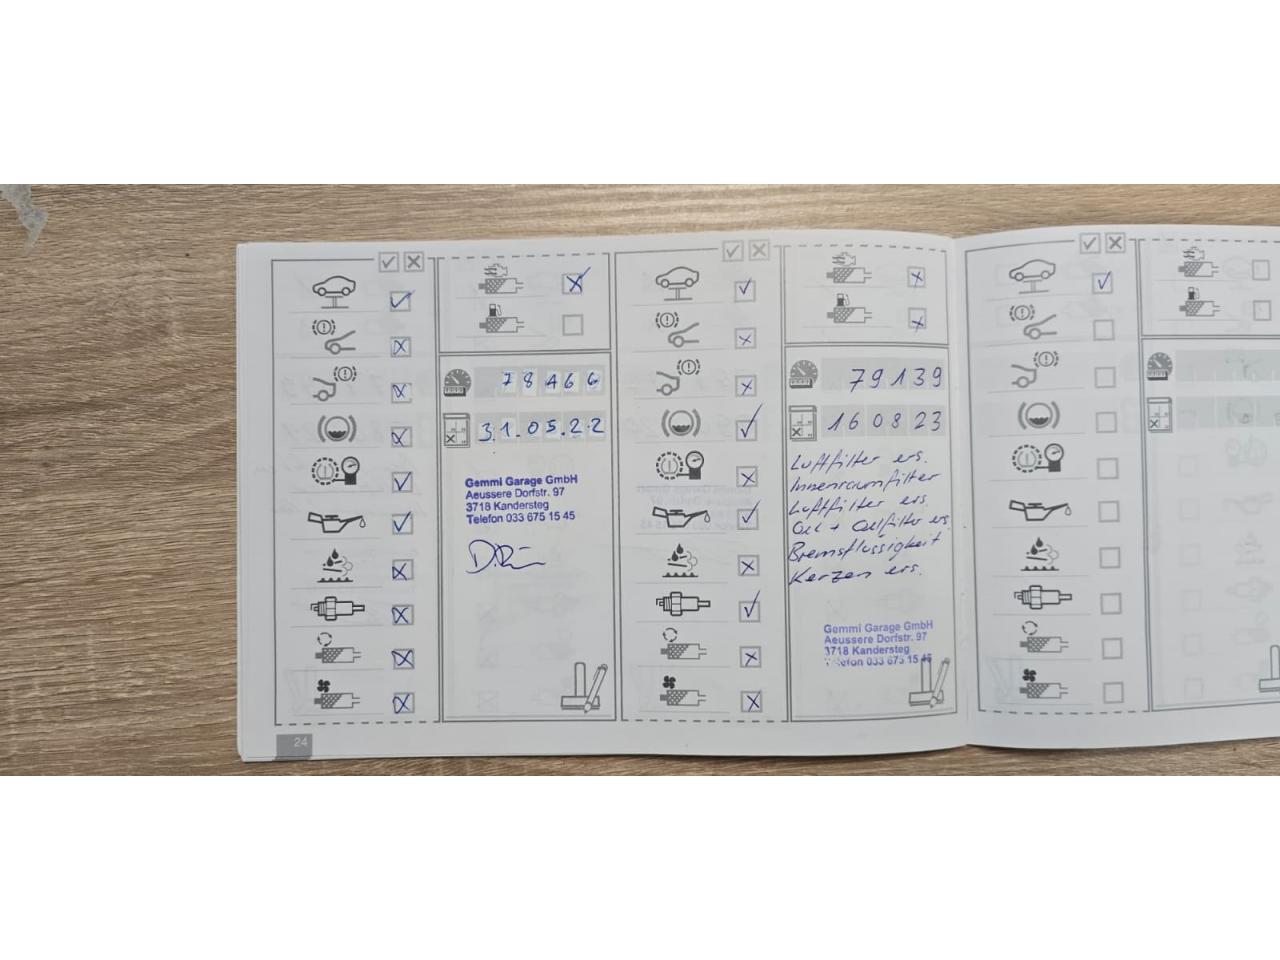 78466
31.05.22
Gemmi Garage GmbH
Aeussere Dorfstr. 97
3718 Kandersteg
Telefon 033 675 15 45
24
79139
160823
Luftfilter ers.
Innenraumfilter
Luftfilter ers.
Oel + Oelfilter ers.
Bremsflüssigkeit
Kerzen ers.
Gemmi Garage GmbH
Aeussere Dorfstr. 97
3718 Kandersteg
Telefon 033 675 15 45